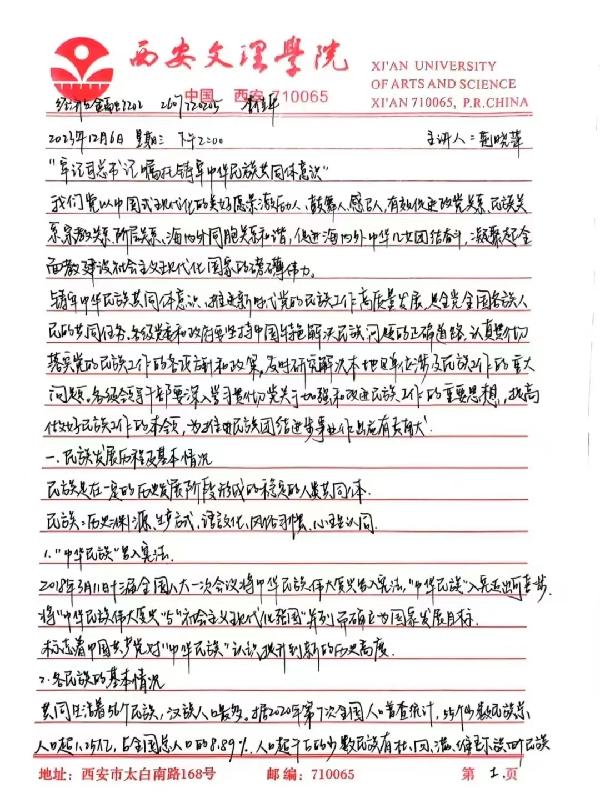 西安文理學院
中国 西安 710065
XI'AN UNIVERSITY
OF ARTS AND SCIENCE
XI'AN 710065, P.R.CHINA
2023年12月6日 星期三 下午2:00 主讲人:
"牢记习总书记嘱托 铸牢中华民族共同体意识"
我们党以中国式现代化的美好愿景激励人、鼓舞人、感召人,有效促进政党关系、民族关
系、宗教关系、阶层关系、海内外同胞关系和谐,促进海内外中华儿女团结奋斗,凝聚起全
面建设社会主义现代化国家的磅礴伟力。
铸牢中华民族共同体意识,推进新时代党的民族工作高质量发展,是全党全国各族人
民的共同任务。各级党委和政府要坚持中国特色解决民族问题的正确道路,认真贯彻
落实党的民族工作的各项方针和政策,及时研究解决本地区单位涉及民族工作的重大
问题。各级领导干部要深入学习贯彻党关于加强和改进民族工作的重要思想,提高
做好民族工作的本领,为
一、民族发展历程及基本情况
民族是在一定的历史发展阶段形成的稳定的人类共同体.
民族:历史渊源、生产方式、语言文化、风俗习惯、心理认同.
1."中华民族"写入宪法.
2018年3月11日十三届全国人大一次会议将中华民族伟大复兴写入宪法,"中华民族"入宪
将"中华民族伟大复兴"与"社会主义现代化强国"并列而确立为国家发展目标.
标志着中国共产党对"中华民族"认识提升到新的历史高度.
2.各民族的基本情况
共同生活着56个民族,汉族人口最多。据2020年第7次全国人口普查统计,55个少数民族总
人口超1.25亿,占全国总人口的8.89%.人口超千万的少数民族有壮、回、满、维吾尔族四个民族
地址:西安市太白南路168号 邮编:710065 第 1. 页